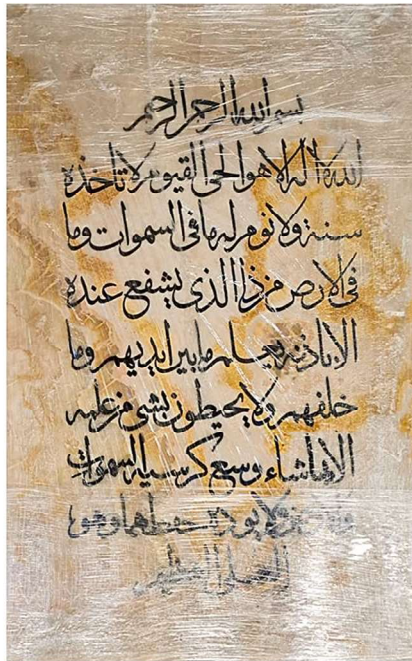 بسم الله الرحمن الرحيم
الله لا اله الا هو الحى القيوم لا تاخذه
سنة ولا نوم له ما فى السموات وما
فى الارض من ذا الذى يشفع عنده
الا باذنه يعلم ما بين ايديهم وما
خلفهم ولا يحيطون بشى من علمه
الا بما شاء وسع كرسيه السموات
ولا يوده حفظهما وهو
العلى العظيم